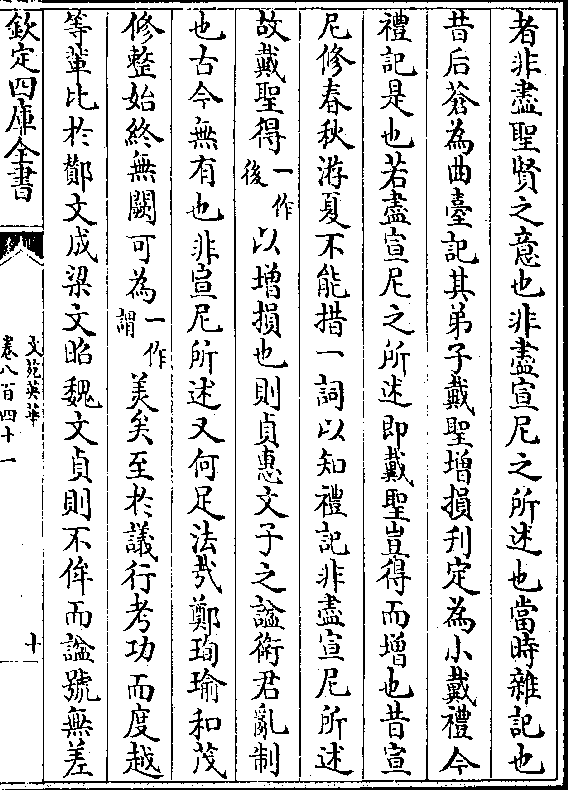 者非盡聖賢之意也非盡宣尼之所述也當時雜記也
昔后蒼為曲臺記其弟子戴聖増損刋定為小戴禮今
禮記是也若盡宣尼之所述即戴聖豈得而増也昔宣
尼修春秋游夏不能措一詞以知禮記非盡宣尼所述
故戴聖得一作後以増損也則貞惠文子之諡衛君亂制
也古今無有也非宣尼所述又何足法㢤鄭珣瑜和茂
修整始終無闕可為一作謂美矣至於議行考功而度越
等輩比於鄭文成梁文昭魏文貞則不侔而諡號無差
欽定四庫全書
文苑英華
卷八百四十一
十